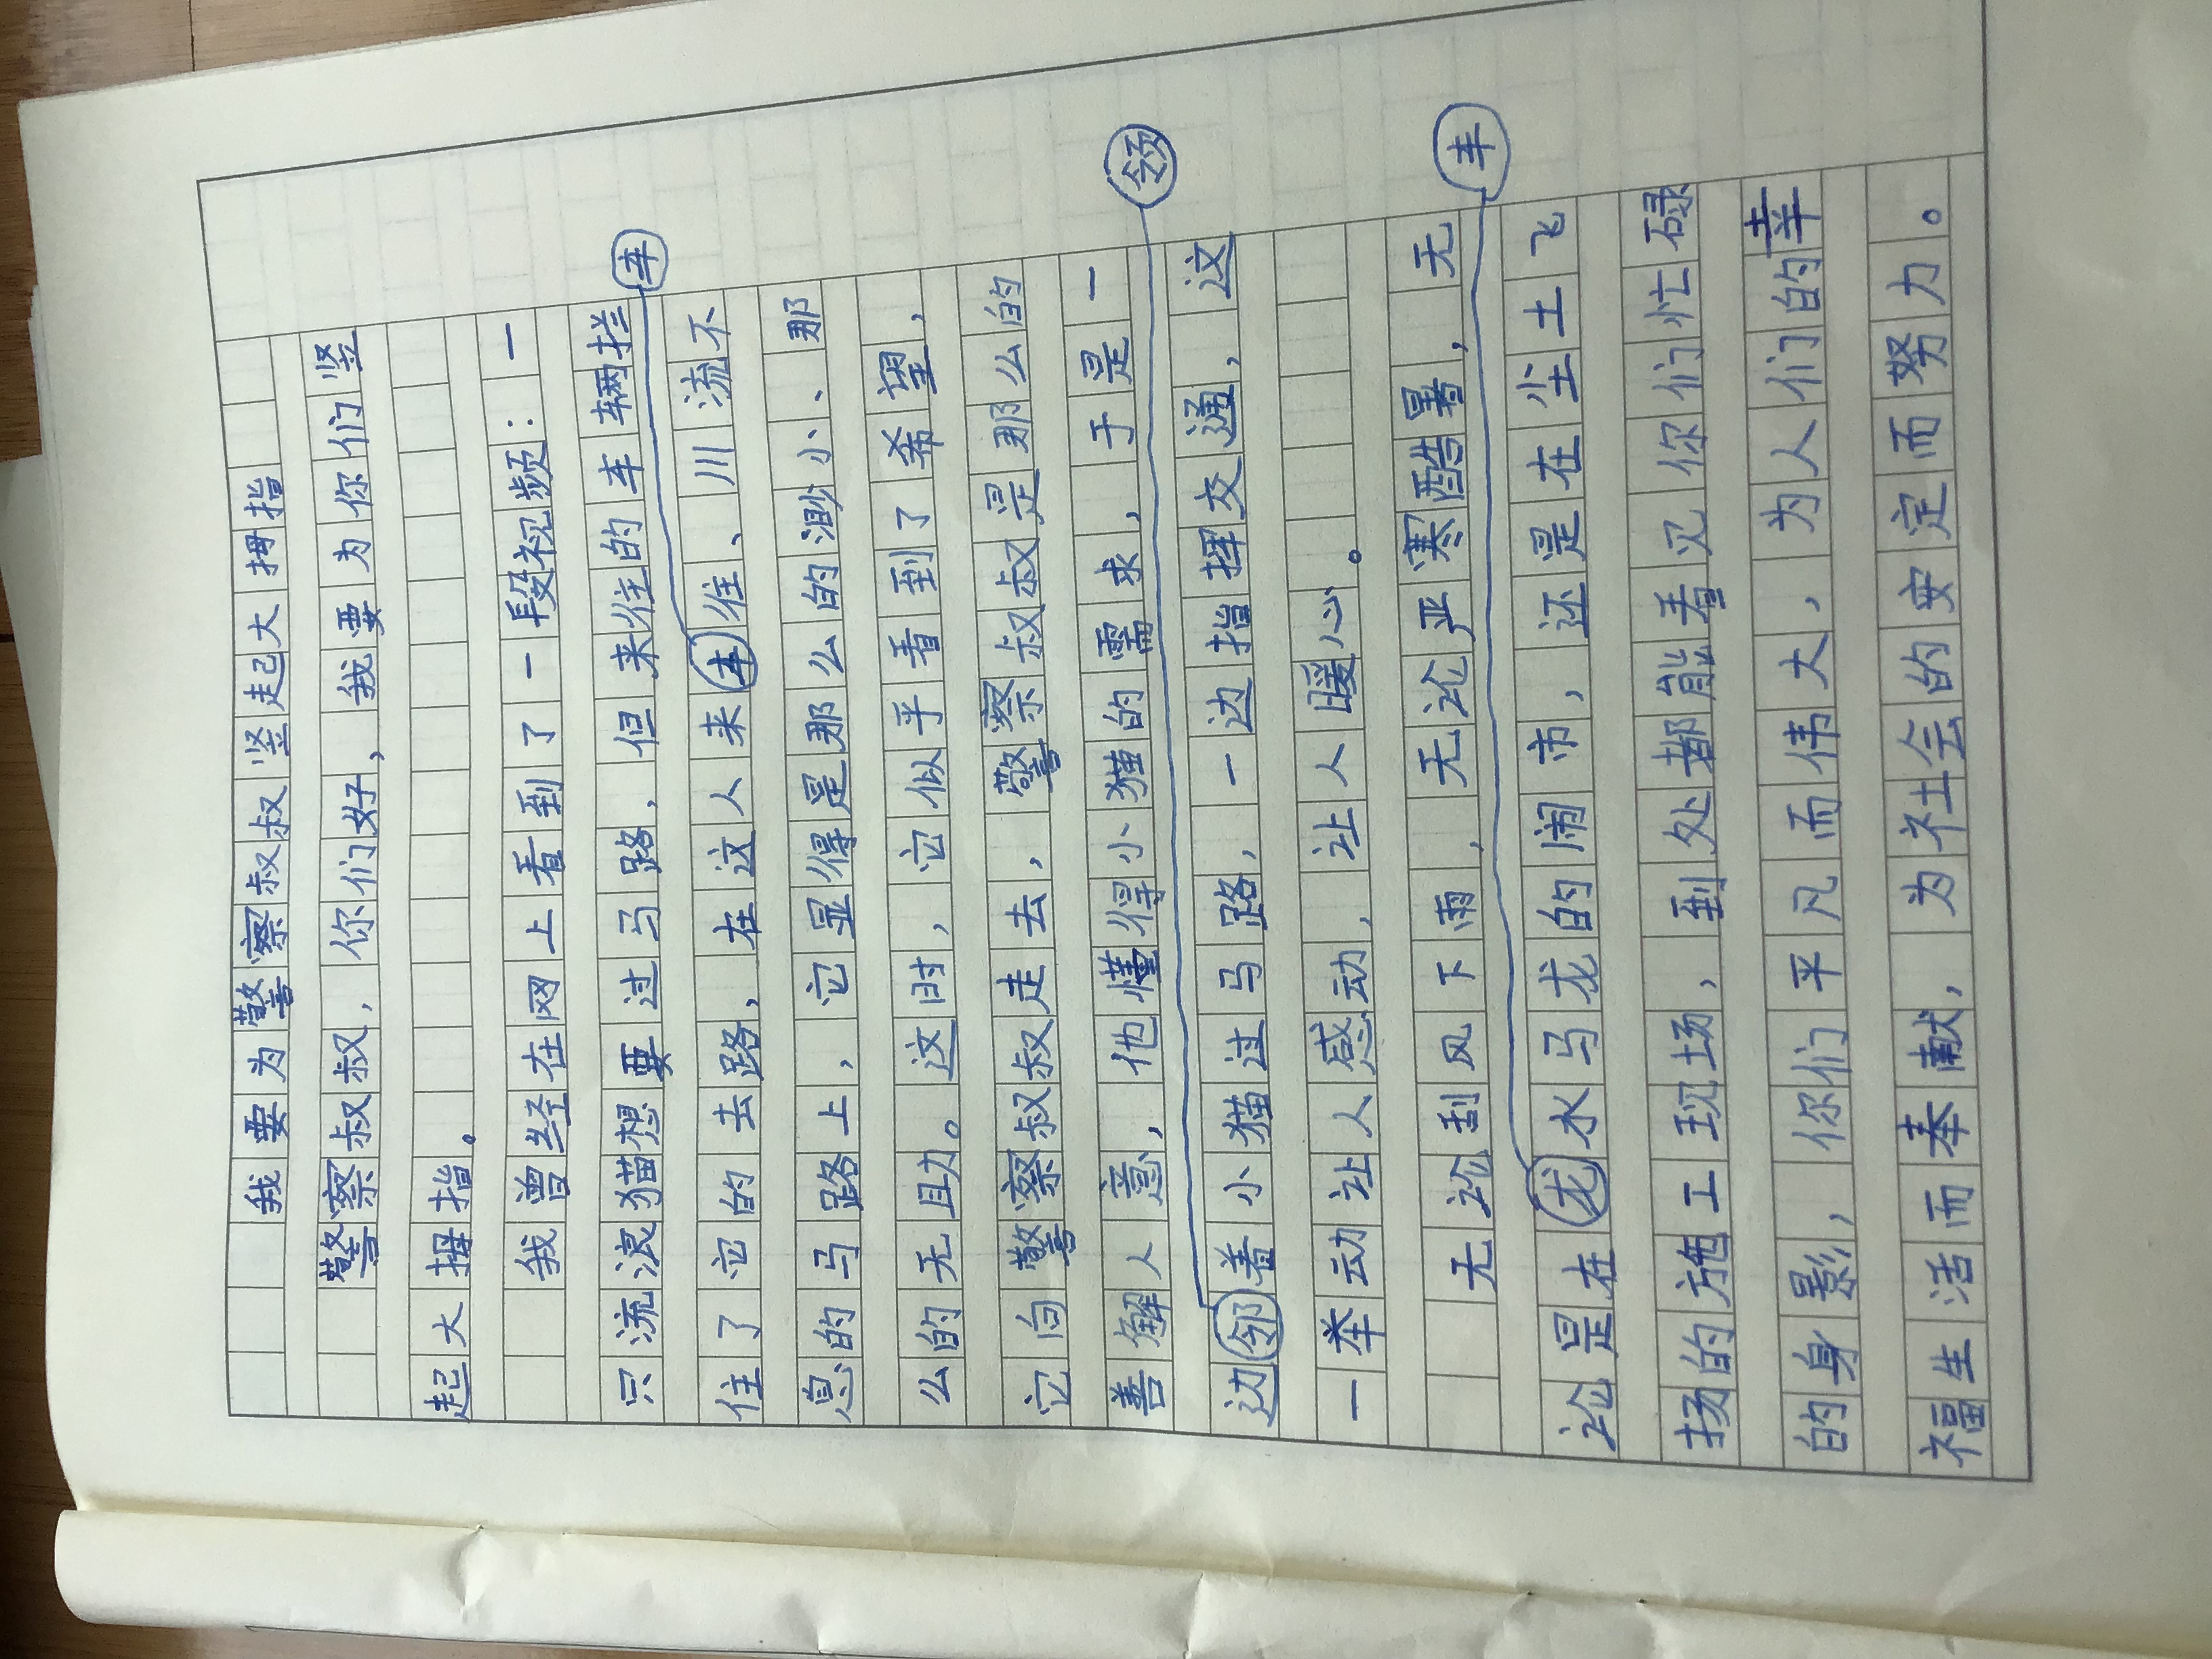 我要为警察叔叔竖起大拇指
警察叔叔，你们好，我要为你们竖
起大拇指。
我曾经在网上看到了一段视频：一
只流浪猫想要过马路，但来往的车辆拦
车
住了它的去路，在这人来车往、川流不
息的马路上，它显得是那么的渺小、那
么的无助。这时，它似乎看到了希望，
它向警察叔叔走去，警察叔叔是那么的
善解人意，他懂得小猫的需求，于是一
领
边邻着小猫过马路，一边指挥交通，这
一举动让人感动，让人暖心。
无论刮风下雨，无论严寒酷暑，无
车
论是在龙水马龙的闹市，还是在尘土飞
扬的施工现场，到处都能看见你们忙碌
的身影，你们平凡而伟大，为人们的幸
福生活而奉献，为社会的安定而努力。